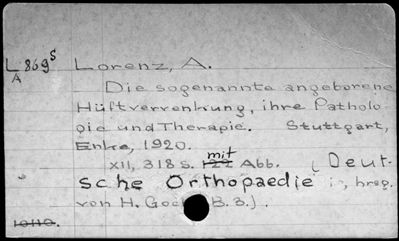 L 869s Lorenz, A.
A
Die sogenannte angeborene
Hüftverrenkung, ihre Patholo-
gie und Therapie. Stuttgart,
Enke, 1920.
XII, 318 S. mit 122 Abb. (Deut-
sche Orthopaedie, hrsg.
von H. Goc B.3.).